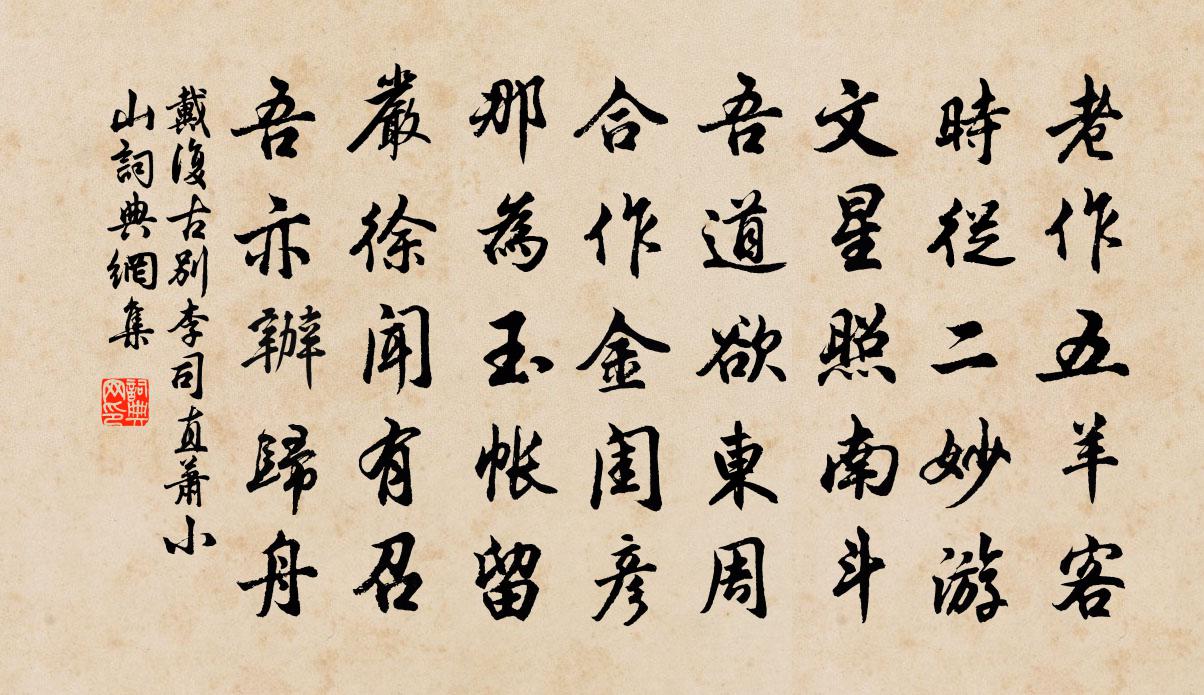 老作五羊客
時從二妙游
文星照南斗
吾道欲東周
合作金閨彥
那為玉帳留
嚴徐聞有召
吾亦辦歸舟
戴復古別李司直蕭小
山詞典網集
詞典网印